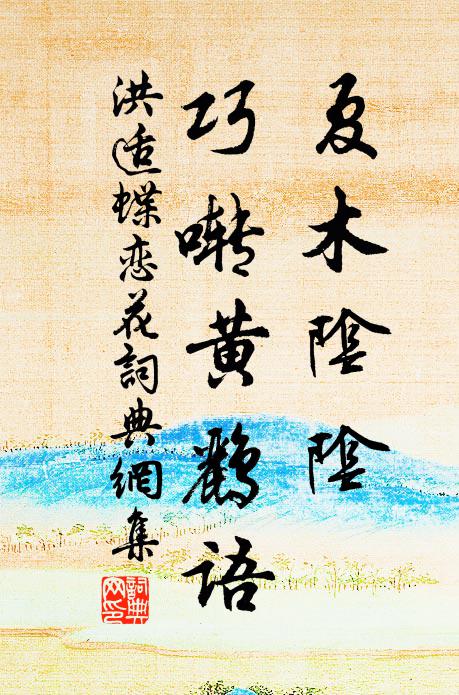 夏木陰陰
巧囀黃鸝語
洪适蝶恋花詞典網集
詞典网印